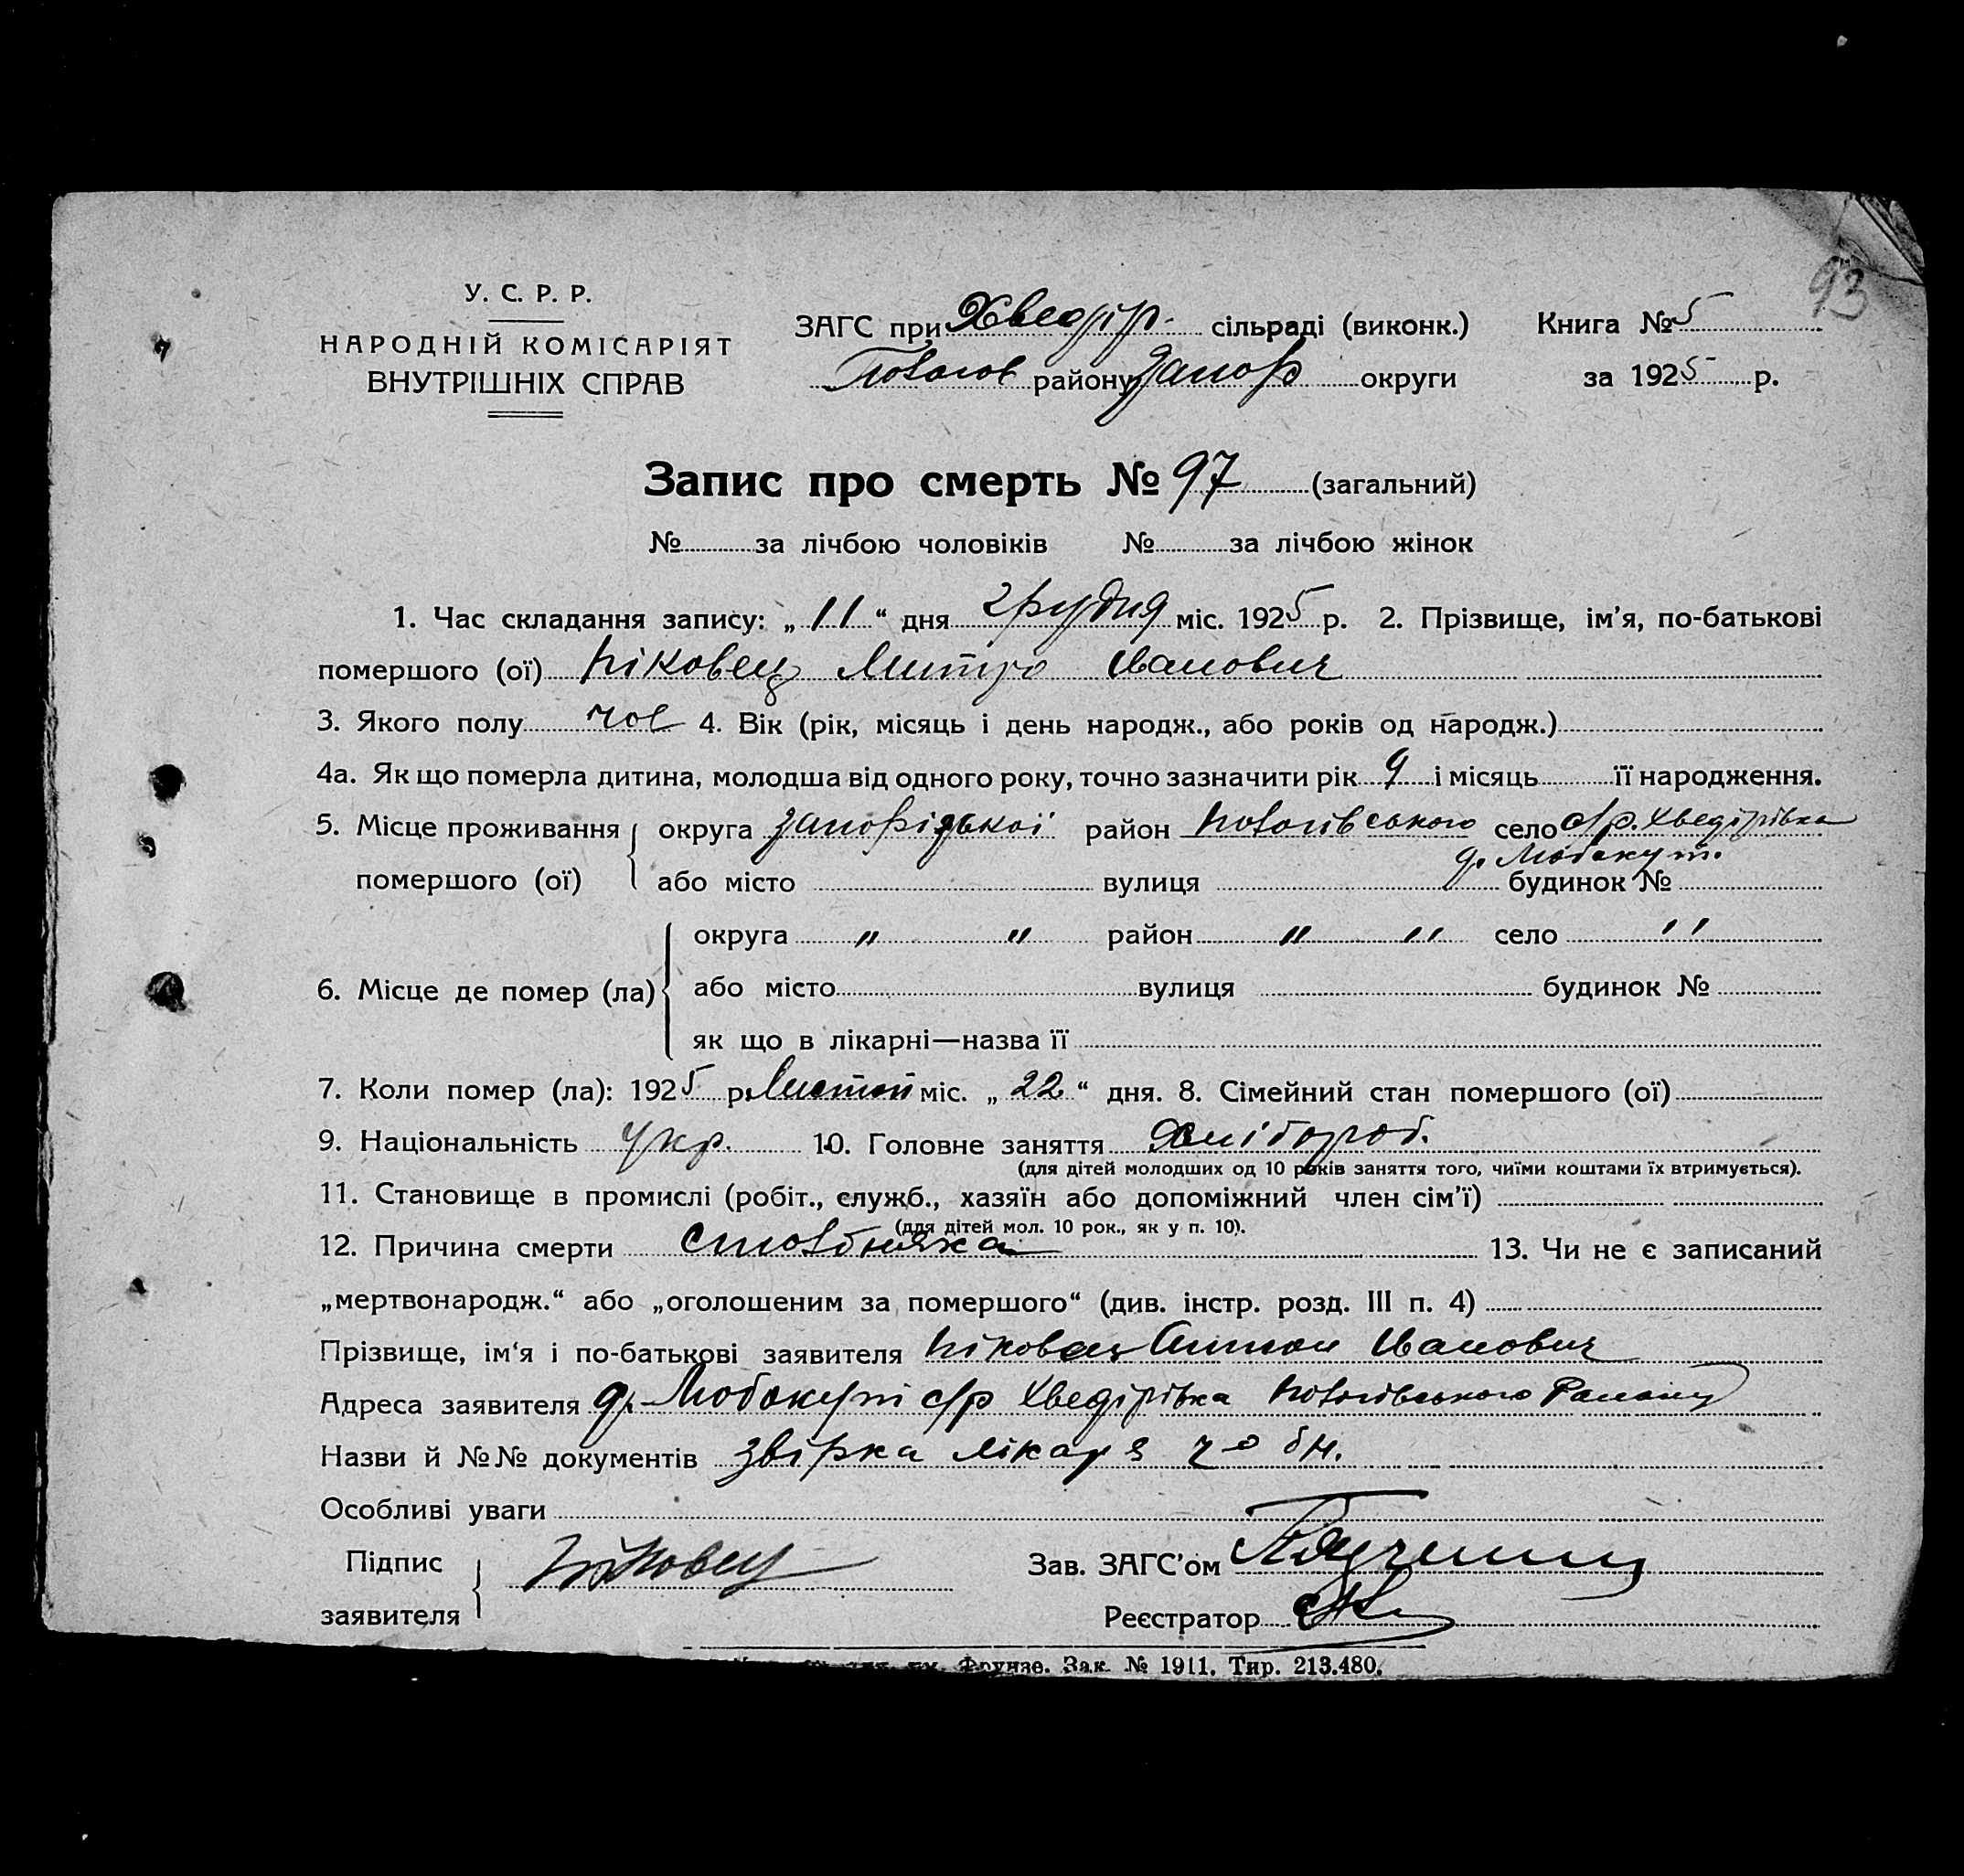 93
У. С. Р. Р.
НАРОДНІЙ КОМІСАРІЯТ
ВНУТРІШНІХ СПРАВ
ЗАГС при Хведір. сільраді (виконк.) Книга № 5
Пологов району Запор округи за 1925 р.
Запис про смерть № 97 (загальний)
№ за лічбою чоловіків № за лічбою жінок
1. Час складання запису: „11“ дня грудня міс. 1925 р. 2. Прізвище, ім'я, по-батькові
помершого (ої) Піковец Митро Іванович
3. Якого полу чол 4. Вік (рік, місяць і день народж., або років од народж.)
4а. Як що померла дитина, молодша від одного року, точно зазначити рік 9 і місяць її народження.
5. Місце проживання округа Запорізької район Пологівського село с/р. Хведірівка
д. Любокут.
помершого (ої) або місто вулиця будинок №
округа „ „ район „ „ село „
6. Місце де помер (ла) або місто вулиця будинок №
як що в лікарні—назва її
7. Коли помер (ла): 1925 р. Листоп міс. „22“ дня. 8. Сімейний стан помершого (ої)
9. Національність Укр. 10. Головне заняття Хлібороб.
(для дітей молодших од 10 років заняття того, чиїми коштами їх втримується).
11. Становище в промислі (робіт., служб., хазяїн або допоміжний член сім'ї)
(для дітей мол. 10 рок., як у п. 10).
12. Причина смерти стовбняка 13. Чи не є записаний
„мертвонародж.“ або „оголошеним за помершого“ (див. інстр. розд. III п. 4)
Прізвище, ім'я і по-батькові заявителя Піковец Іванович
Адреса заявителя д. Любокут с/р Хведірівка Пологівського Району
Назви й №№ документів звірка лікаря
Особливі уваги
Підпис Піковец Зав. ЗАГС'ом
заявителя Реєстратор
Фрунзе. Зак. № 1911. Тир. 213.480.